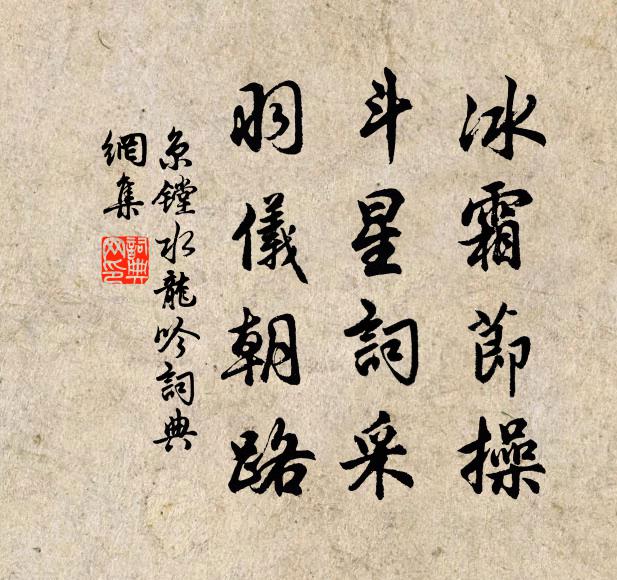 冰霜節操
斗星詞采
羽儀朝路
京鏜水龍吟詞典
網集
詞典
网印